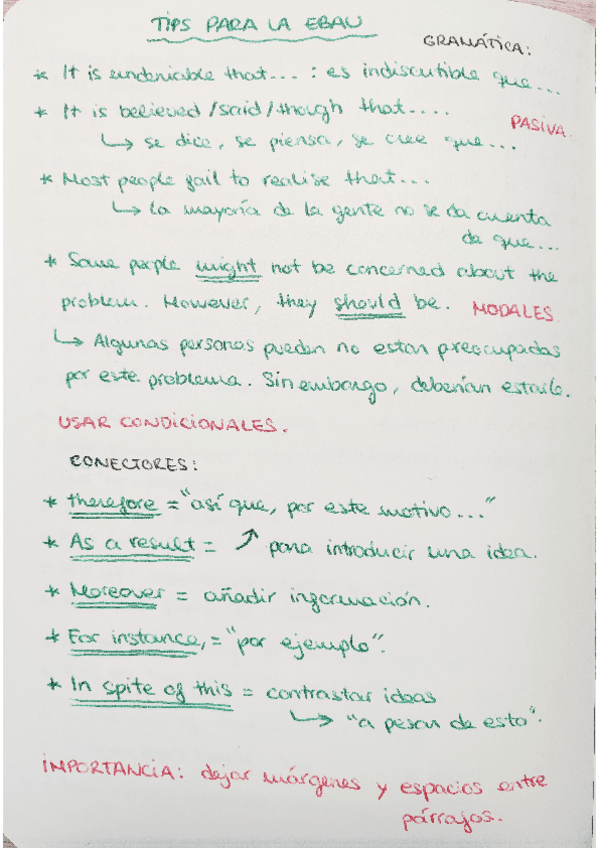 TIPS PARA LA EBAU
GRAMÁTICA:
* It is undeniable that... : es indiscutible que...
* It is believed/said/though that....
PASIVA.
↳ se dice, se piensa, se cree que...
* Most people fail to realise that...
↳ La mayoría de la gente no se da cuenta
de que...
* Some people might not be concerned about the
problem. However, they should be. MODALES
↳ Algunas personas pueden no estan preocupadas
por este problema. Sin embargo, deberían estarlo.
USAR CONDICIONALES.
CONECTORES:
* therefore = "así que, por este motivo..."
* As a result = ↗ para introducir una idea.
* Moreover = añadir información.
* For instance, = "por ejemplo".
* In spite of this = contrastar ideas
↳ "a pesar de esto".
IMPORTANCIA: dejar márgenes y espacios entre
párrafos.